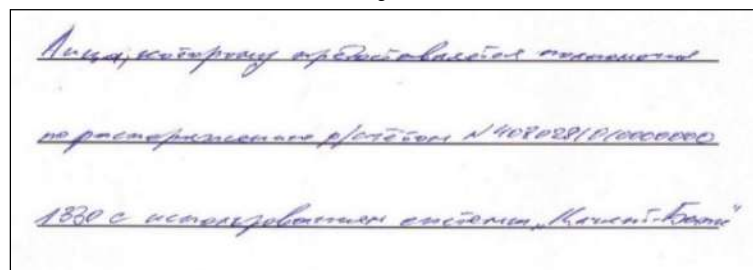 Лица, которому предоставляется полномочия
по распоряжению р/счётом N 4080281010000000
1330 с использованием системы „Клиент-Банк"